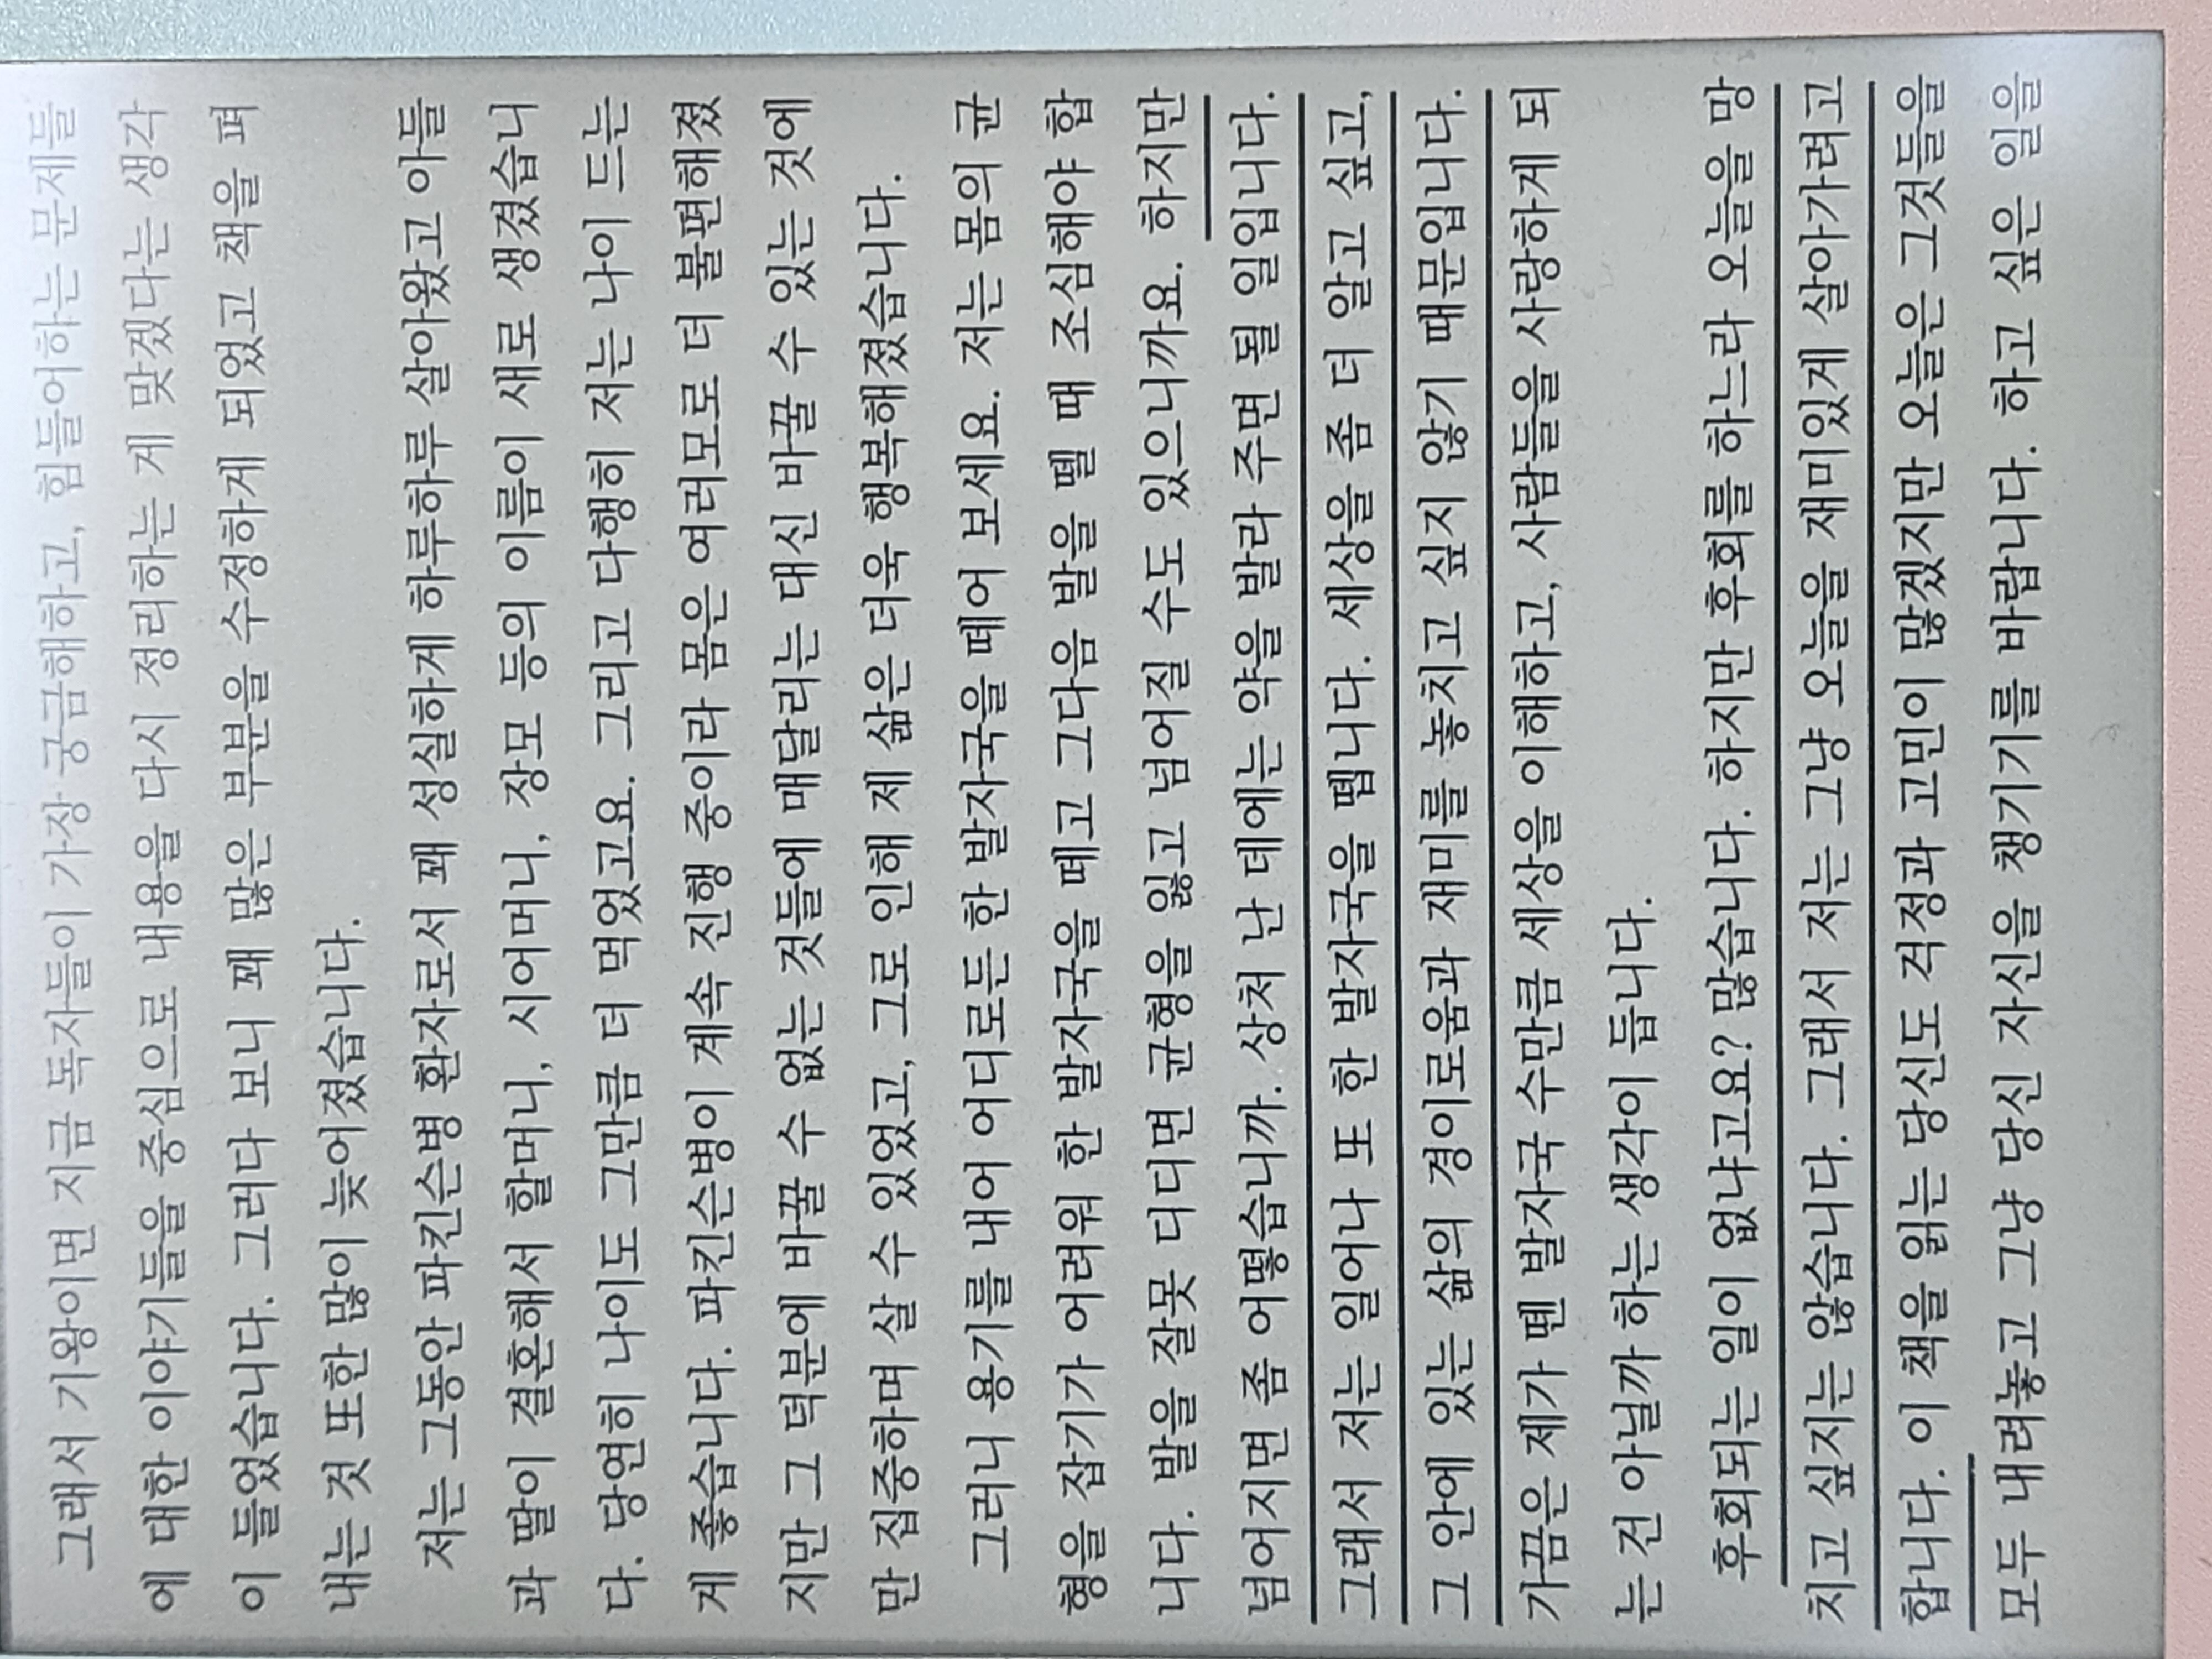 그래서 기왕이면 지금 독자들이 가장 궁금해하고, 힘들어하는 문제들
에 대한 이야기들을 중심으로 내용을 다시 정리하는 게 맞겠다는 생각
이 들었습니다. 그러다 보니 꽤 많은 부분을 수정하게 되었고 책을 펴
내는 것 또한 많이 늦어졌습니다.
저는 그동안 파킨슨병 환자로서 꽤 성실하게 하루하루 살아왔고 아들
과 딸이 결혼해서 할머니, 시어머니, 장모 등의 이름이 새로 생겼습니
다. 당연히 나이도 그만큼 더 먹었고요. 그리고 다행히 저는 나이 드는
게 좋습니다. 파킨슨병이 계속 진행 중이라 몸은 여러모로 더 불편해졌
지만 그 덕분에 바꿀 수 없는 것들에 매달리는 대신 바꿀 수 있는 것에
만 집중하며 살 수 있었고, 그로 인해 제 삶은 더욱 행복해졌습니다.
그러니 용기를 내어 어디로든 한 발자국을 떼어 보세요. 저는 몸의 균
형을 잡기가 어려워 한 발자국을 떼고 그다음 발을 뗄 때 조심해야 합
니다. 발을 잘못 디디면 균형을 잃고 넘어질 수도 있으니까요. 하지만
넘어지면 좀 어떻습니까. 상처 난 데에는 약을 발라 주면 될 일입니다.
그래서 저는 일어나 또 한 발자국을 뗍니다. 세상을 좀 더 알고 싶고,
그 안에 있는 삶의 경이로움과 재미를 놓치고 싶지 않기 때문입니다.
가끔은 제가 뗀 발자국 수만큼 세상을 이해하고, 사람들을 사랑하게 되
는 건 아닐까 하는 생각이 듭니다.
후회되는 일이 없냐고요? 많습니다. 하지만 후회를 하느라 오늘을 망
치고 싶지는 않습니다. 그래서 저는 그냥 오늘을 재미있게 살아가려고
합니다. 이 책을 읽는 당신도 걱정과 고민이 많겠지만 오늘은 그것들을
모두 내려놓고 그냥 당신 자신을 챙기기를 바랍니다. 하고 싶은 일을